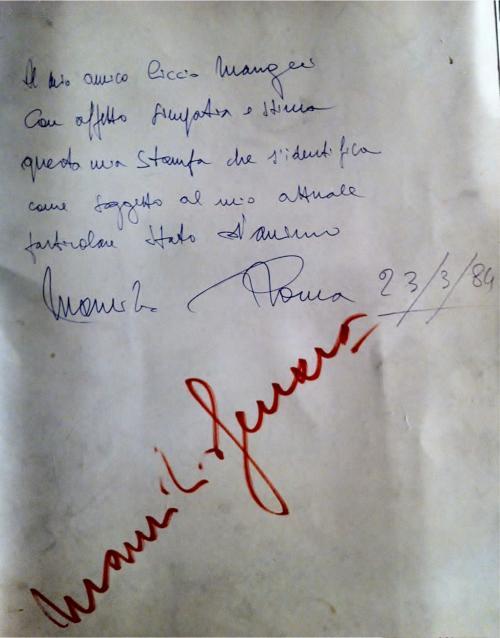 Al mio amico Ciccio Mangeri
Con affetto simpatia e stima
questa mia Stampa che s'identifica
come soggetto al mio attuale
particolare stato d'animo
Roma 23/3/84